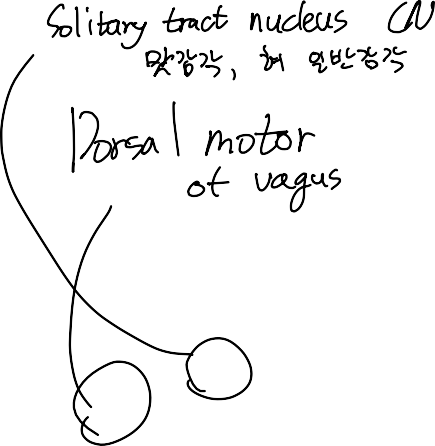 Solitary tract nucleus CN
맛감각, 혀 일반감각
Dorsal motor
of vagus